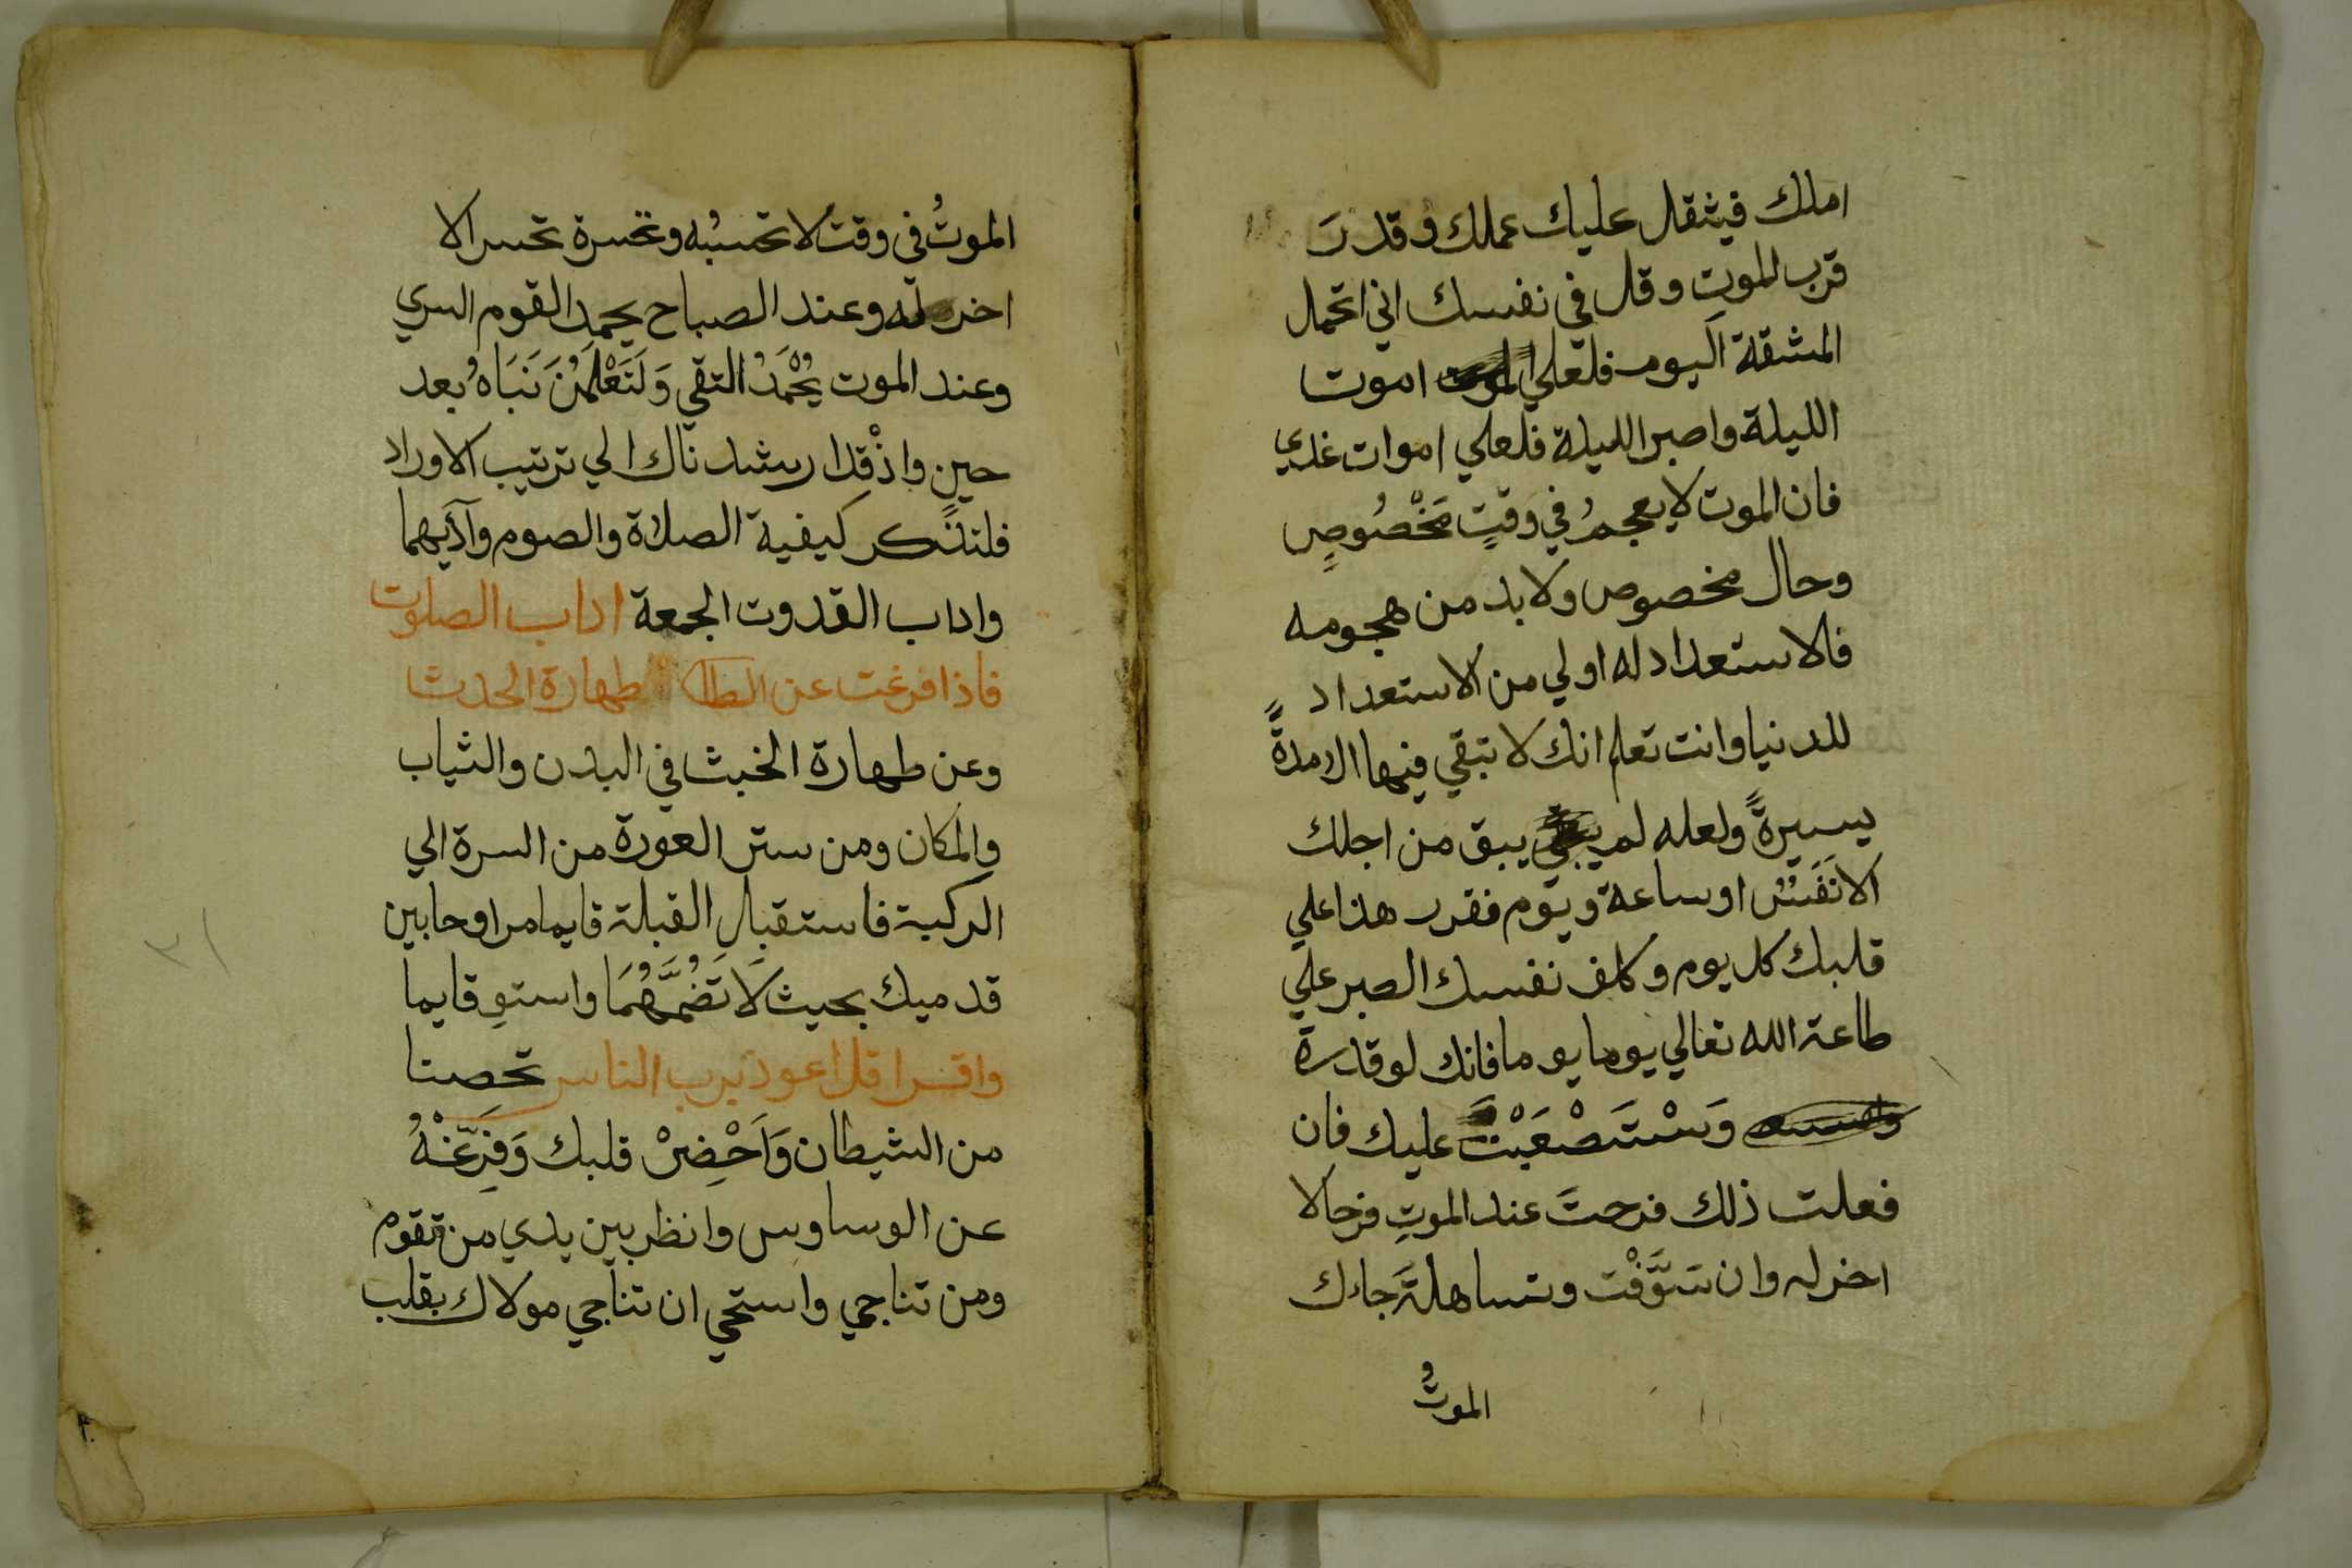 املك فيثقل عليك عملك وقدر
قرب الموت وقل في نفسك اني اتحمل
المشقة اليوم فلعلي اموت
الليلة واصبر الليلة فلعلي اموات غدي
فان الموت لا يعجم في وقتٍ مَخْصُوصٍ
وحال مخصوص ولا بد من هجومه
فالاستعداد له اولي من الاستعداد
للدنيا وانت تعلم انك لا تبقي فيها الا مدةً
يسيرةً ولعله لم يبق من اجلك
الا نَفَسٌ او ساعة ويوم فقرب هذا علي
قلبك كل يوم وكلف نفسك الصبر علي
طاعة الله تعالي يوما يوما فانك لو قدرة
وَسْتَصْعَبْت عليك فان
فعلت ذلك فرحتَ عند الموتِ فرحا لا
اخر له وان سَوَّفْت وتساهلة جاءك
الموتُ
الموتُ في وقت لا تحسبُه وتحسرة تحسرا لا
اخر له وعند الصباح يحمد القوم السري
وعند الموت يُحْمَدُ التقي وَلَتَعْلَمُنَّ نَبَاهُ بعد
حينٍ واذْ قد ارشدناك الي ترتيب الاوراد
فلتذكر كيفية الصلاة والصوم وآدابهما
واداب القدوت الجمعة اداب الصلوت
فاذا فرغت عن طهارة الحدث
وعن طهارة الخبث في البدن والثياب
والمكان ومن ستر العورة من السرة الي
الركبة فاستقبل القبلة قايما مراوحا بين
قدميك بحيث لا تَضُمَّهُمَا واستوِ قايما
واقرا قل اعوذ برب الناس تحصنا
من الشيطان وَاَحْضِرْ قلبك وَفَرِّغْهُ
عن الوساوس وانظر بين يدي من تقوم
ومن تناجي واستحي ان تناجي مولاك بقلب